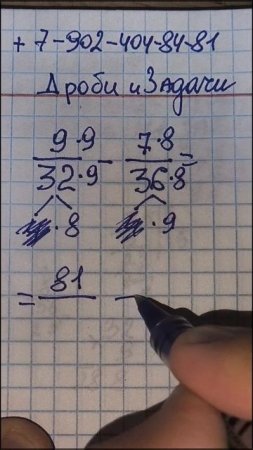 +7-902-404-84-81
Дроби и Задачи
9·9 7·8
— - — =
32·9 36·8
·8 ·9
= 81 —